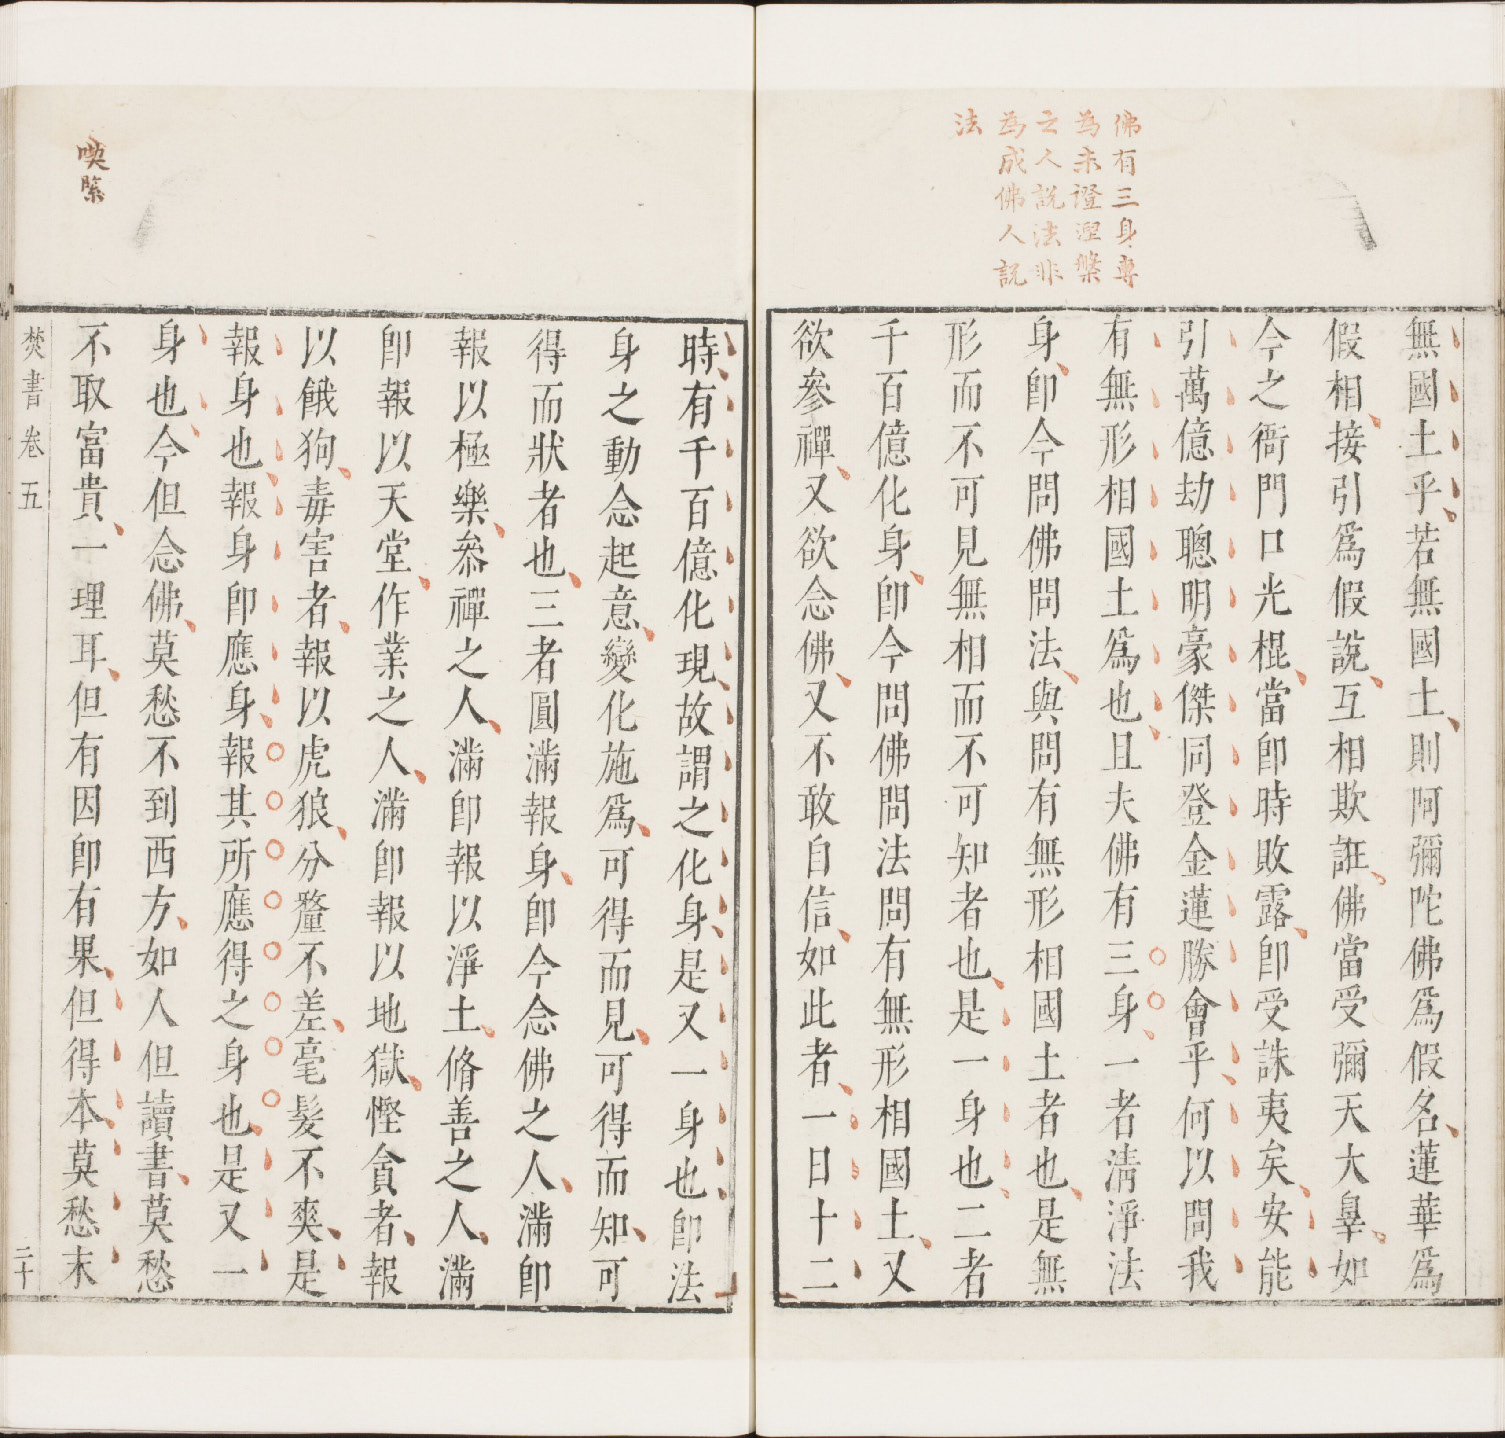 佛有三身專
為未證涅槃
之人說法非
為成佛人說
法
無國土乎若無國土則阿彌陀佛爲假名蓮華爲
假相接引爲假說互相欺誑佛當受彌天大辠如
今之衙門口光棍當卽時敗露卽受誅夷矣安能
引萬億劫聰明豪傑同登金蓮勝會乎何以問我
有無形相國土爲也且夫佛有三身一者淸淨法
身卽今問佛問法與問有無形相國土者也是無
形而不可見無相而不可知者也是一身也二者
千百億化身卽今問佛問法問有無形相國土又
欲參禪又欲念佛又不敢自信如此者一日十二
時有千百億化現故謂之化身是又一身也卽法
身之動念起意變化施爲可得而見可得而知可
得而狀者也三者圓滿報身卽今念佛之人滿卽
報以極樂叅禪之人滿卽報以淨土脩善之人滿
卽報以天堂作業之人滿卽報以地獄慳貪者報
以餓狗毒害者報以虎狼分釐不差毫髮不爽是
報身也報身卽應身報其所應得之身也是又一
身也今但念佛莫愁不到西方如人但讀書莫愁
不取富貴一理耳但有因卽有果但得本莫愁末
喫緊
焚書卷五
二十